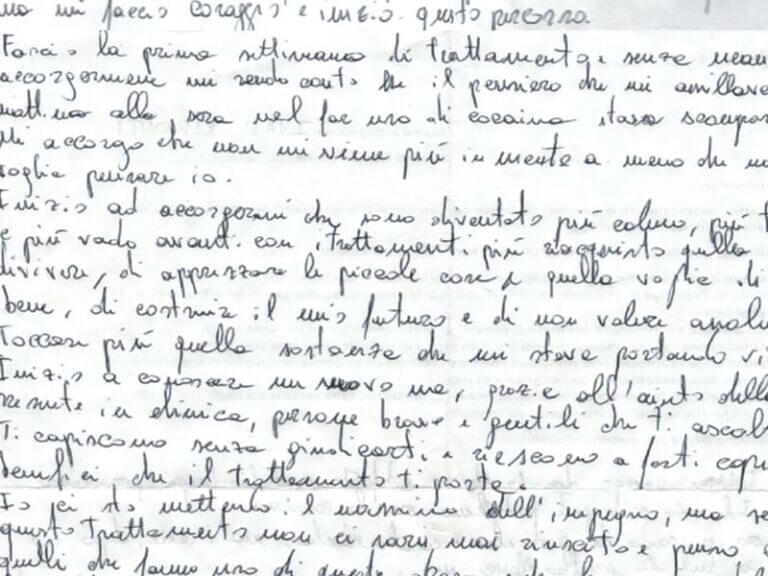 ma mi faccio coraggio e inizio questo percorso.
Faccio la prima settimana di trattamento e senza
accorgermene mi rendo conto che il pensiero che mi
mattina alla sera nel far uso di cocaina stava
Mi accorgo che non mi viene più in mente a meno che
voglia pensare io.
Inizio ad accorgermi che sono diventato più calmo, più
e più vado avanti con i trattamenti più riacquisto quella
vivere, di apprezzare le piccole cose e quella voglia di
bene, di costruire il mio futuro e di non voler
Toccare più quella sostanza che mi stava portando
Inizio a conoscere un nuovo me, grazie all'aiuto
in clinica, persone brave e gentili che ti
Ti capiscono senza giudicarti e riescono a farti
benefici che il trattamento ti porta.
Io ci sto mettendo il massimo dell'impegno, ma
questo trattamento non ci sarei mai riuscito e penso
quelli che fanno uso di questa